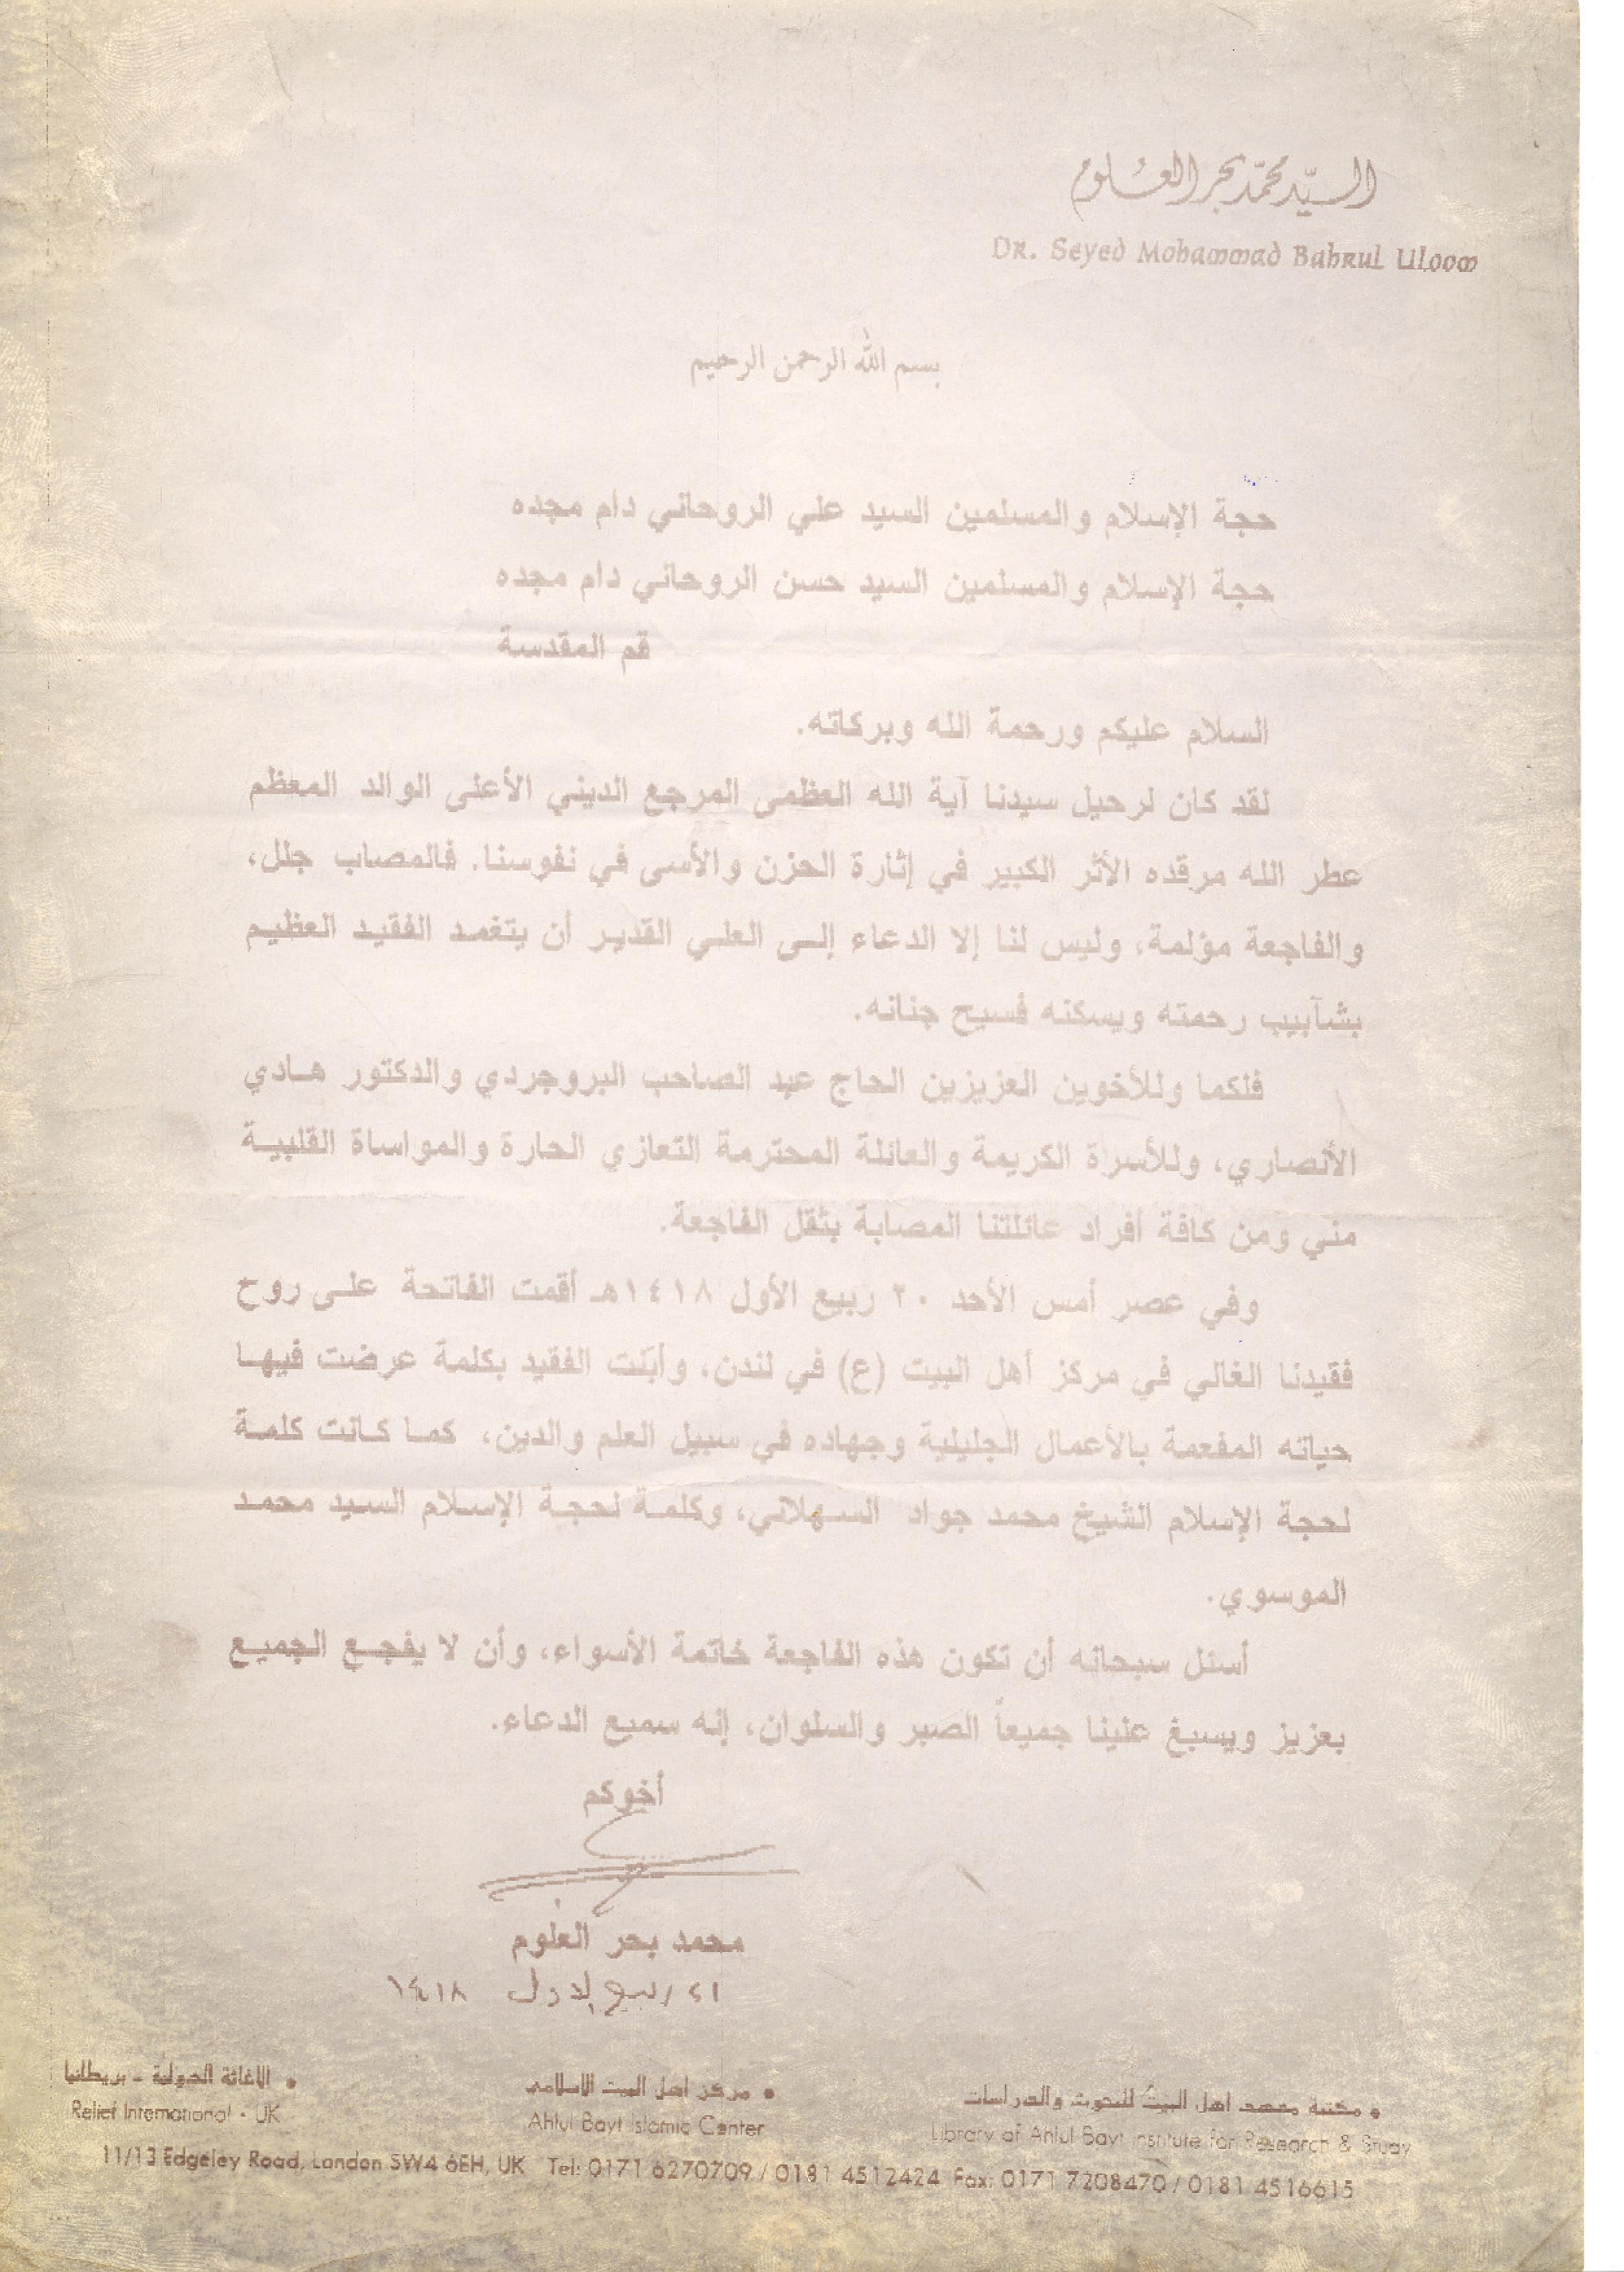 السيد محمد بحر العلوم
Dr. Seyed Mohammad Bahrul Uloom
بسم الله الرحمن الرحيم
حجة الإسلام والمسلمين السيد علي الروحاني دام مجده
حجة الإسلام والمسلمين السيد حسن الروحاني دام مجده
قم المقدسة
السلام عليكم ورحمة الله وبركاته.
لقد كان لرحيل سيدنا آية الله العظمى المرجع الديني الأعلى الوالد المعظم
عطر الله مرقده الأثر الكبير في إثارة الحزن والأسى في نفوسنا. فالمصاب جلل،
والفاجعة مؤلمة، وليس لنا إلا الدعاء إلى العلي القدير أن يتغمد الفقيد العظيم
بشآبيب رحمته ويسكنه فسيح جنانه.
فلكما وللأخوين العزيزين الحاج عبد الصاحب البروجردي والدكتور هادي
الأنصاري، وللأسرة الكريمة والعائلة المحترمة التعازي الحارة والمواساة القلبية
مني ومن كافة أفراد عائلتنا المصابة بثقل الفاجعة.
وفي عصر أمس الأحد ٢٠ ربيع الأول ١٤١٨هـ أقمت الفاتحة على روح
فقيدنا الغالي في مركز أهل البيت (ع) في لندن، وأبّنت الفقيد بكلمة عرضت فيها
حياته المفعمة بالأعمال الجليلية وجهاده في سبيل العلم والدين، كما كانت كلمة
لحجة الإسلام الشيخ محمد جواد السهلاني، وكلمة لحجة الإسلام السيد محمد
الموسوي.
أسئل سبحانه أن تكون هذه الفاجعة خاتمة الأسواء، وأن لا يفجع الجميع
بعزيز ويسبغ علينا جميعاً الصبر والسلوان، إنه سميع الدعاء.
أخوكم
محمد بحر العلوم
٢١ ربيع الاول ١٤١٨
• مكتبة معهد اهل البيت للبحوث والدراسات • مركز اهل البيت الاسلامي • الاغاثة الدولية - بريطانيا
Relief International - UK Ahlul Bayt Islamic Center Library of Ahlul Bayt Institute for Research & Study
11/13 Edgeley Road, London SW4 6EH, UK Tel: 0171 6270709 / 0181 4512424 Fax: 0171 7208470 / 0181 4516615